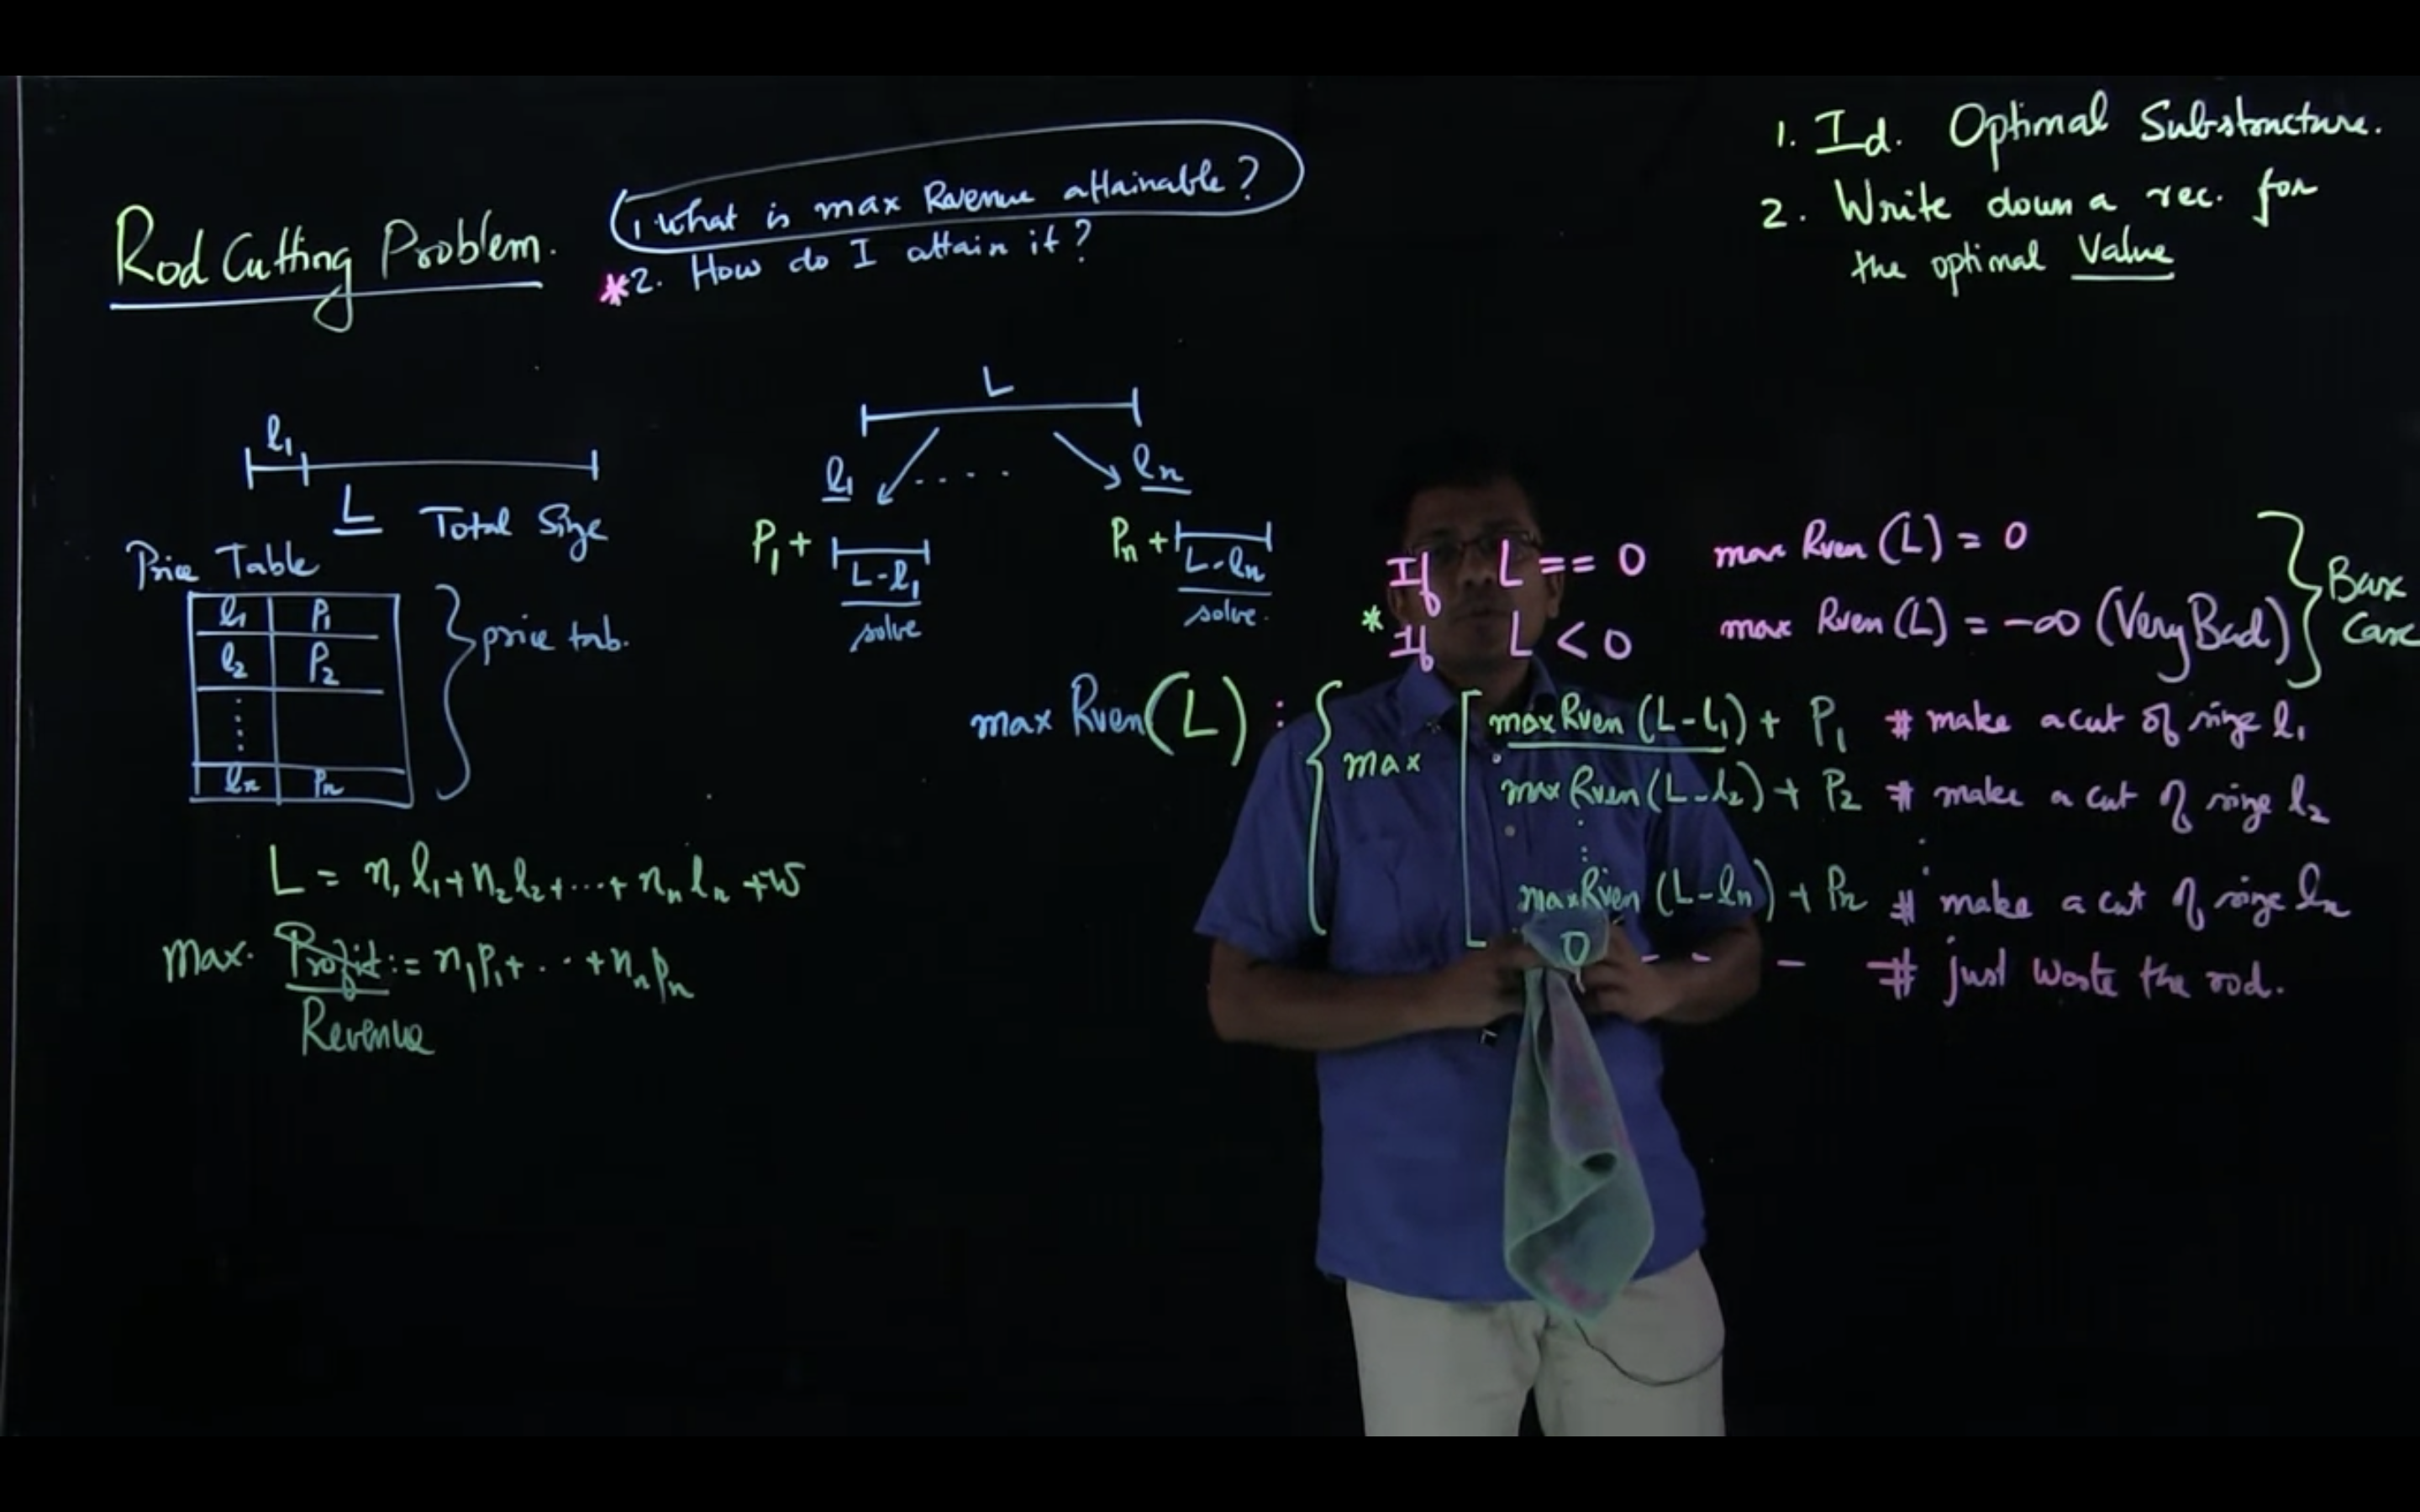 Rod Cutting Problem.
1 What is max Revenue attainable?
*2. How do I attain it?
1. Id. Optimal Substructure.
2. Write down a rec. for
the optimal Value
l₁
L Total Size
Price Table
l₁ P₁
l₂ P₂
⋮
lₙ Pₙ
} price tab.
L = n₁l₁+n₂l₂+...+nₙlₙ+w
Max. Profit := n₁p₁+...+nₙpₙ
Revenue
L
l₁ .... lₙ
P₁+ L-l₁ solve
Pₙ+ L-lₙ solve.
If L == 0 max Rven (L) = 0
* If L < 0 max Rven (L) = -∞ (Very Bad)
} Base Case
max Rven(L) : { max [
max Rven (L-l₁) + P₁ # make a cut of size l₁
max Rven (L-l₂) + P₂ # make a cut of size l₂
⋮
max Rven (L-lₙ) + Pₙ # make a cut of size lₙ
0 - - - # just waste the rod.